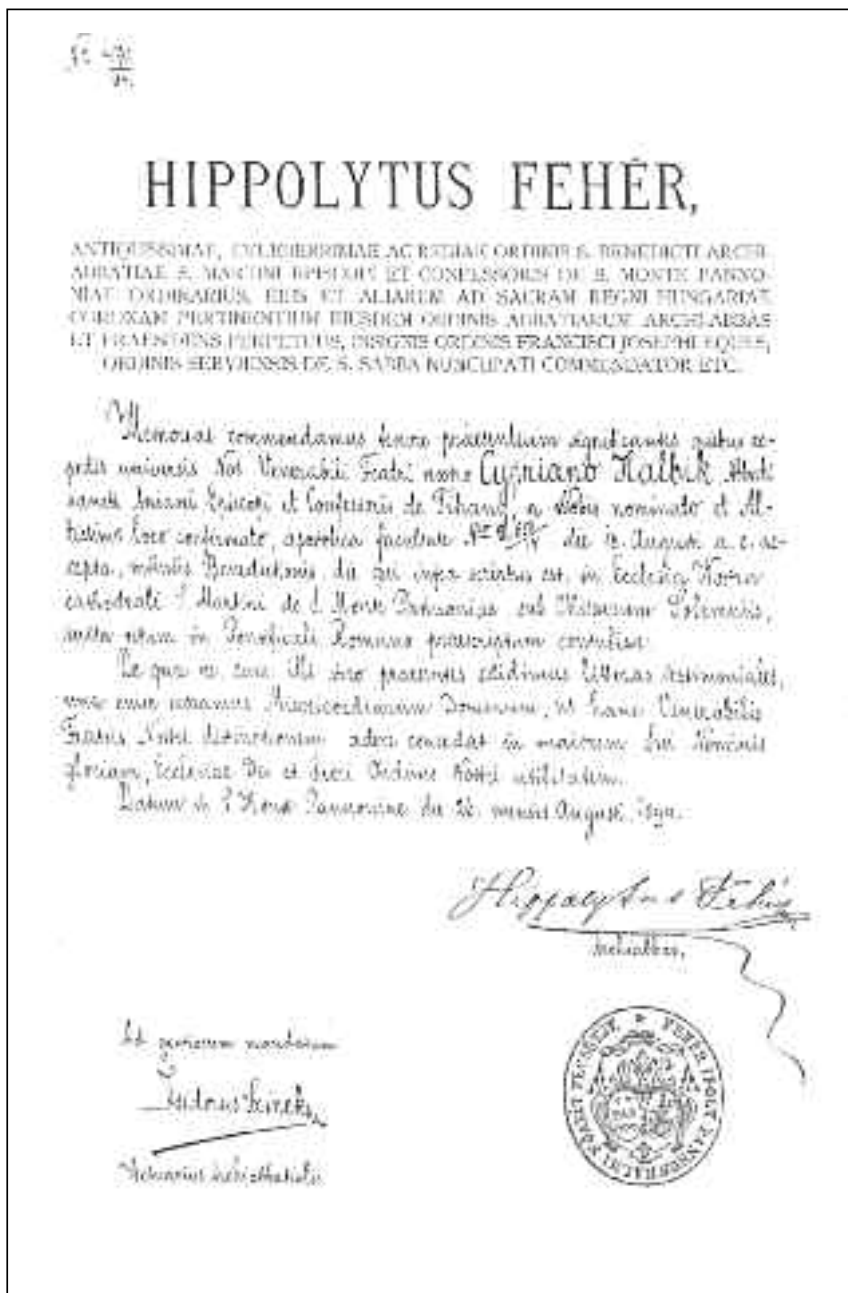 HIPPOLYTUS FEHÉR,
ANTIQUISSIMAE, CELEBERRIMAE AC REGIAE ORDINIS S. BENEDICTI ARCHI-
ABBATIAE S. MARTINI EPISCOPI ET CONFESSORIS DE S. MONTE PANNO-
NIAE ORDINARIUS, EIUS ET ALIARUM AD SACRAM REGNI HUNGARIAE
CORONAM PERTINENTIUM EIUSDEM ORDINIS ABBATIARUM ARCHI-ABBAS
ET PRAESIDENS PERPETUUS, INSIGNIS ORDINIS FRANCISCI JOSEPHI EQUES,
ORDINIS SERVIENSIS DE S. SABBA NUNCUPATI COMMENDATOR ETC.
Memoriae commendamus tenore praesentium significantes quibus ex-
pedit universis Nos Venerabili Fratri nostro Cypriano Halbik Abbati
sancti Aniani Episcopi et Confessoris de Tihany, a Nobis nominato et Al-
tissimo loco confirmato, apostolica facultate Nro die 12. August a. c. ac-
cepta, munus Benedictionis, die qui infra scriptus est, in Ecclesia Nostra
cathedrali S. Martini de S. Monte Pannoniae sub Missarum Solemniis,
iuxta ritum in Pontificali Romano praescriptum contulisse.
De qua re easdem praesentes edidimus litteras testimoniales,
Misericordiam Domini, ut hanc Venerabilis
Fratris Nostri distinctionem cedat in maiorem Sui Nominis
gloriam, Ecclesiae Dei et Sacri Ordinis Nostri utilitatem.
Datum in S. Monte Pannoniae die mensis August.
Hippolytus Fehér
Archiabbas.
Ad mandatum
Isidorus
Archiabbatialis
FEHÉR IPOLY PANNONHALMI FŐAPÁT PECSÉTJE
PAX